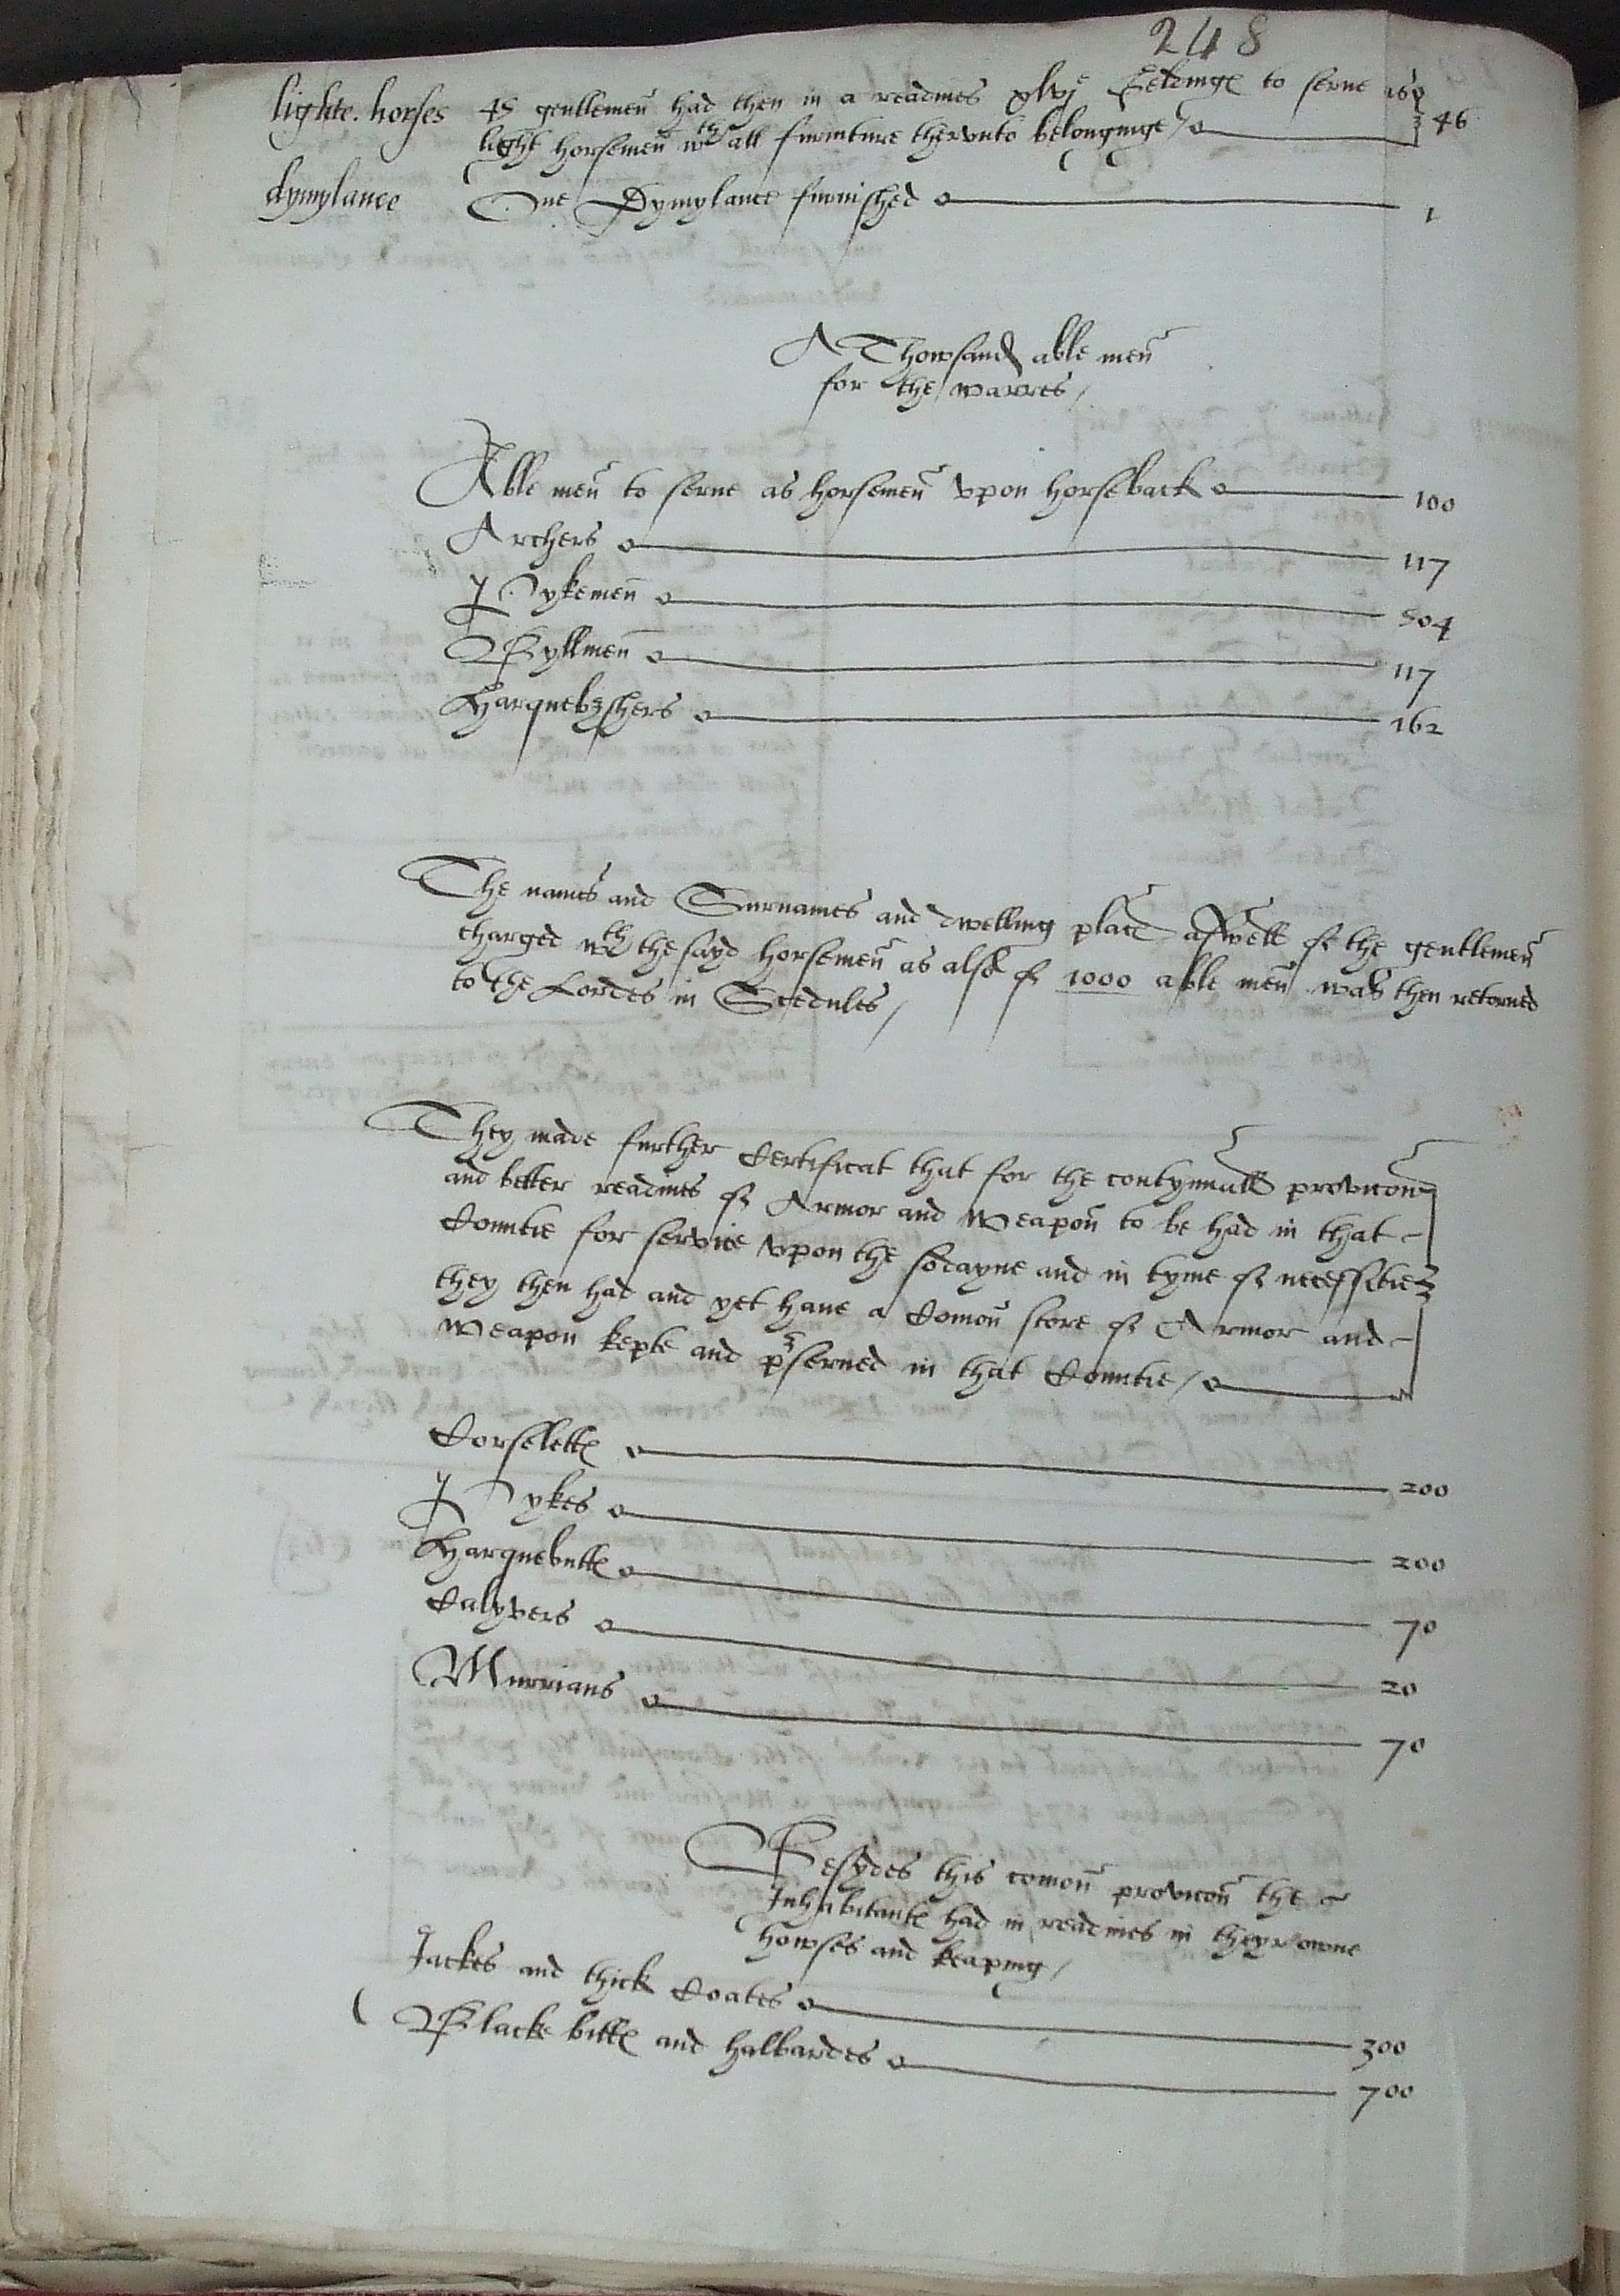 248
lighte. horses 45 gentlemen had then in a readines xlvj Geldinges to serue as
light horsemen wth all furniture thervnto belonginge / 46
dymylance One Dymylance furnished 1
A Thowsand able men
for the warres /
Able men to serue as horsemen vpon horseback 100
Archers 117
Pykemen 504
Byllmen 117
Harquebushers 162
The names and Surnames and dwelling places aswell of the gentlemen
charged wth the sayd horsemen as also of 1000 able men was then retorned
to the Lordes in Scedules /
They made further Certificat that for the contynuall provicon
and better readines of Armor and weapon to be had in that
Countie for service vpon the sodayne and in tyme of necessitie
they then had and yet haue a Comon store of Armor and
weapon kepte and pserued in that Countie /
Corselettes 200
Pykes 200
Harquebuttes 70
Calyvers 20
Murrians 70
Besydes this comon provicon the
Inhabitantes had in readines in theyr owne
howses and keaping /
Jackes and thick Coates 300
Blacke billes and halbardes 700